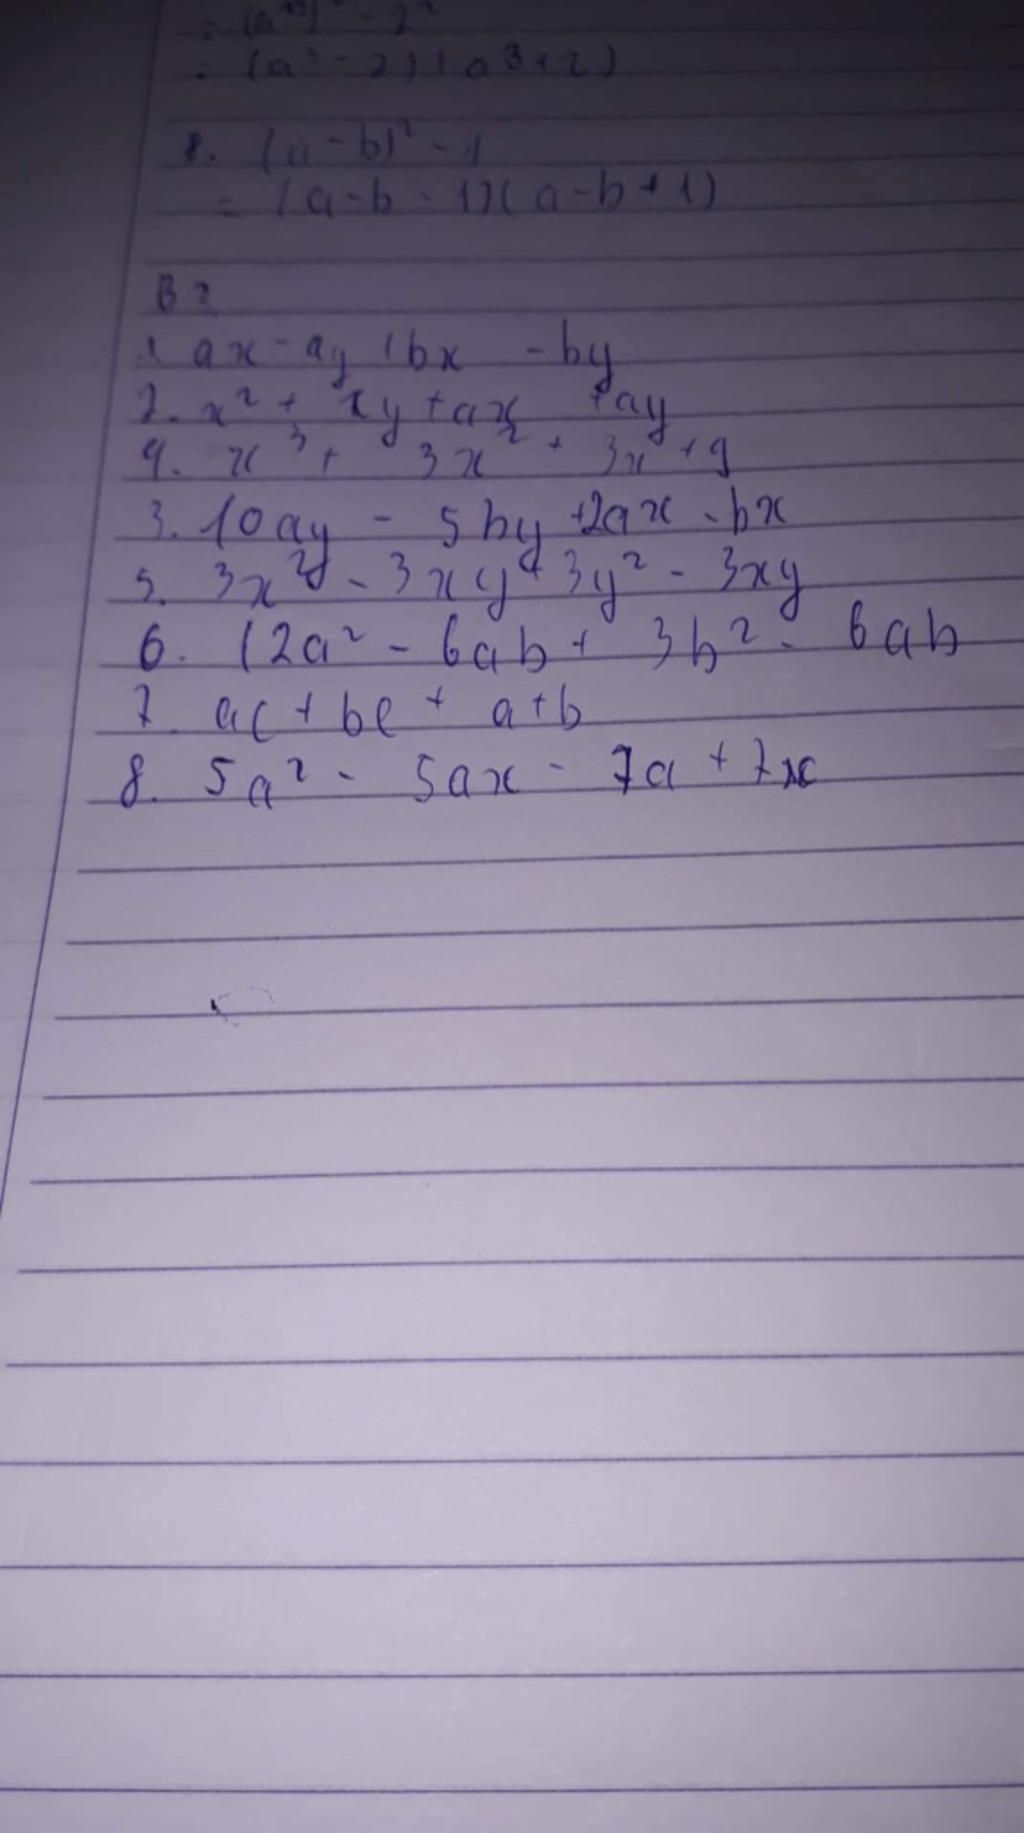 = (a³)² - 2²
= (a³ - 2)(a³+2)
8. (a-b)² - 1
= (a-b - 1)(a-b+1)
B2
1 ax - ay + bx - by
2. x² + xy + ax + ay
4. x³ + 3x² + 3x + 9
3. 10ay - 5by +2ax - bx
5. 3x² - 3xy + 3y² - 3xy
6. 12a² - 6ab + 3b² - 6ab
7 ac + bc + a+b
8. 5a² - 5ax - 7a + 7x